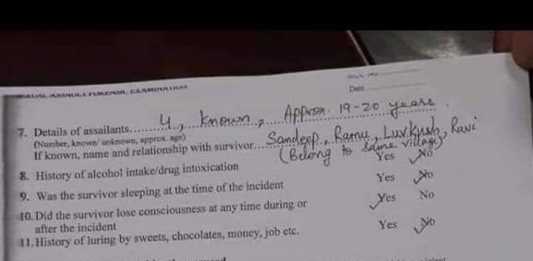 SEXUAL ASSAULT FORENSIC EXAMINATION
Date
7. Details of assailants..... 4, known, Approx. 19-20 years.
(Number, known/ unknown, approx. age)
If known, name and relationship with survivor.... Sandeep, Ramu, Luvkush, Ravi
(Belong to same village)
8. History of alcohol intake/drug intoxication Yes No
9. Was the survivor sleeping at the time of the incident Yes No
10. Did the survivor lose consciousness at any time during or Yes No
after the incident
11. History of luring by sweets, chocolates, money, job etc. Yes No